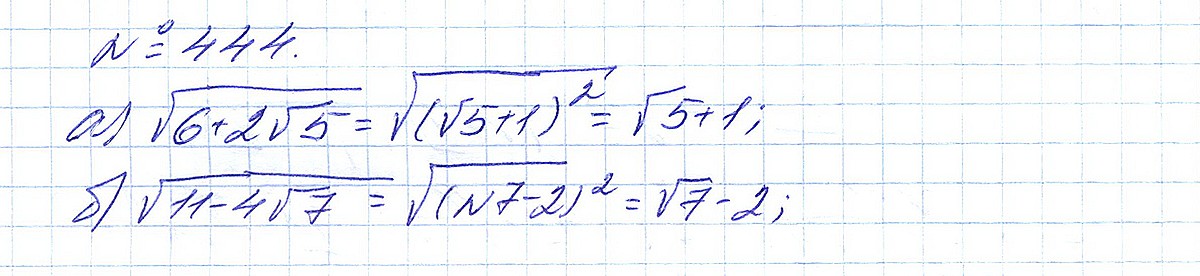 № 444.
а) √(6+2√5) = √((√5+1)²) = √5+1;
б) √(11-4√7) = √((√7-2)²) = √7-2;